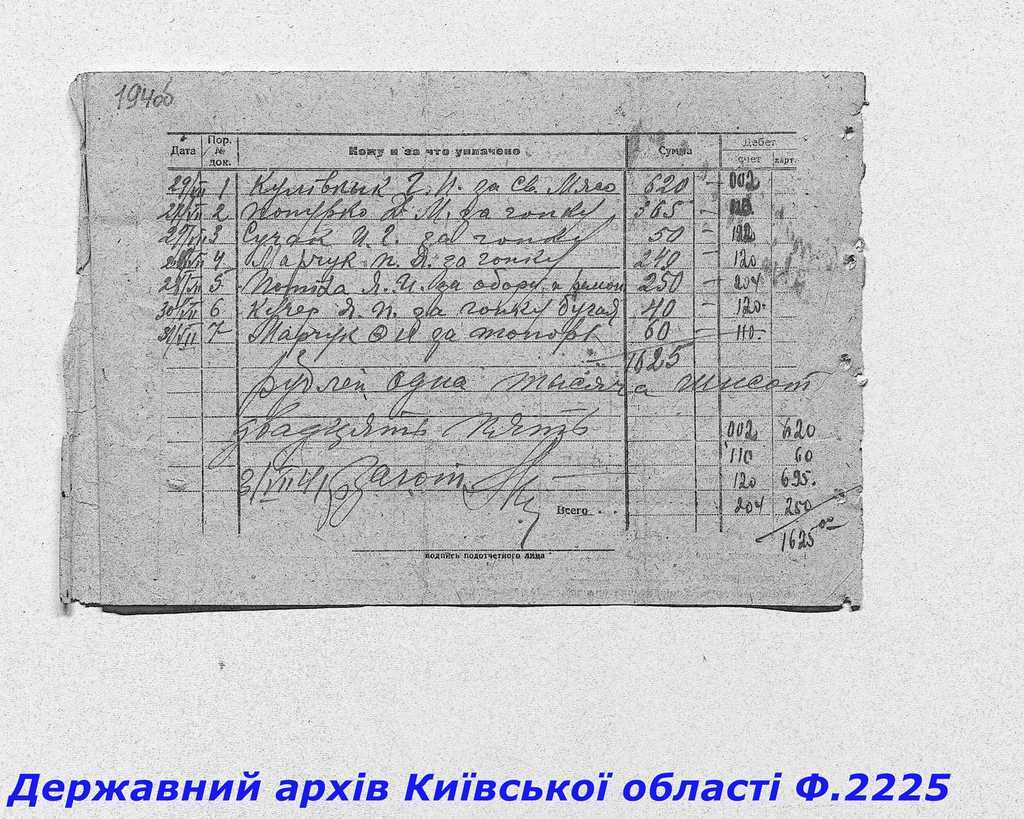 194об
Дата Пор. № док. Кому и за что уплачено Сумма Дебет счет карт.
29/VII 1 Кулівнык Г. П. за св. мясо 620 – 002
27/VII 2 М. за гонку 365 –
27/VII 3 Сучак И. Г. за гонку 50 –
4 Марчук П. Я. за гонку 240 – 120
5 Я. И. за 250 – 204
30/VII 6 Кучер Я. П. за гонку бугая 40 – 120.
31/VII 7 Марчук за топоры 60 – 110.
1625
рублей одна тысяча шисот
двадцять пять
002 620
110 60
31/VII 41
120 695.
Всего . .
204 250
1625 00
подпись подотчетного лица
Державний архів Київської області Ф.2225